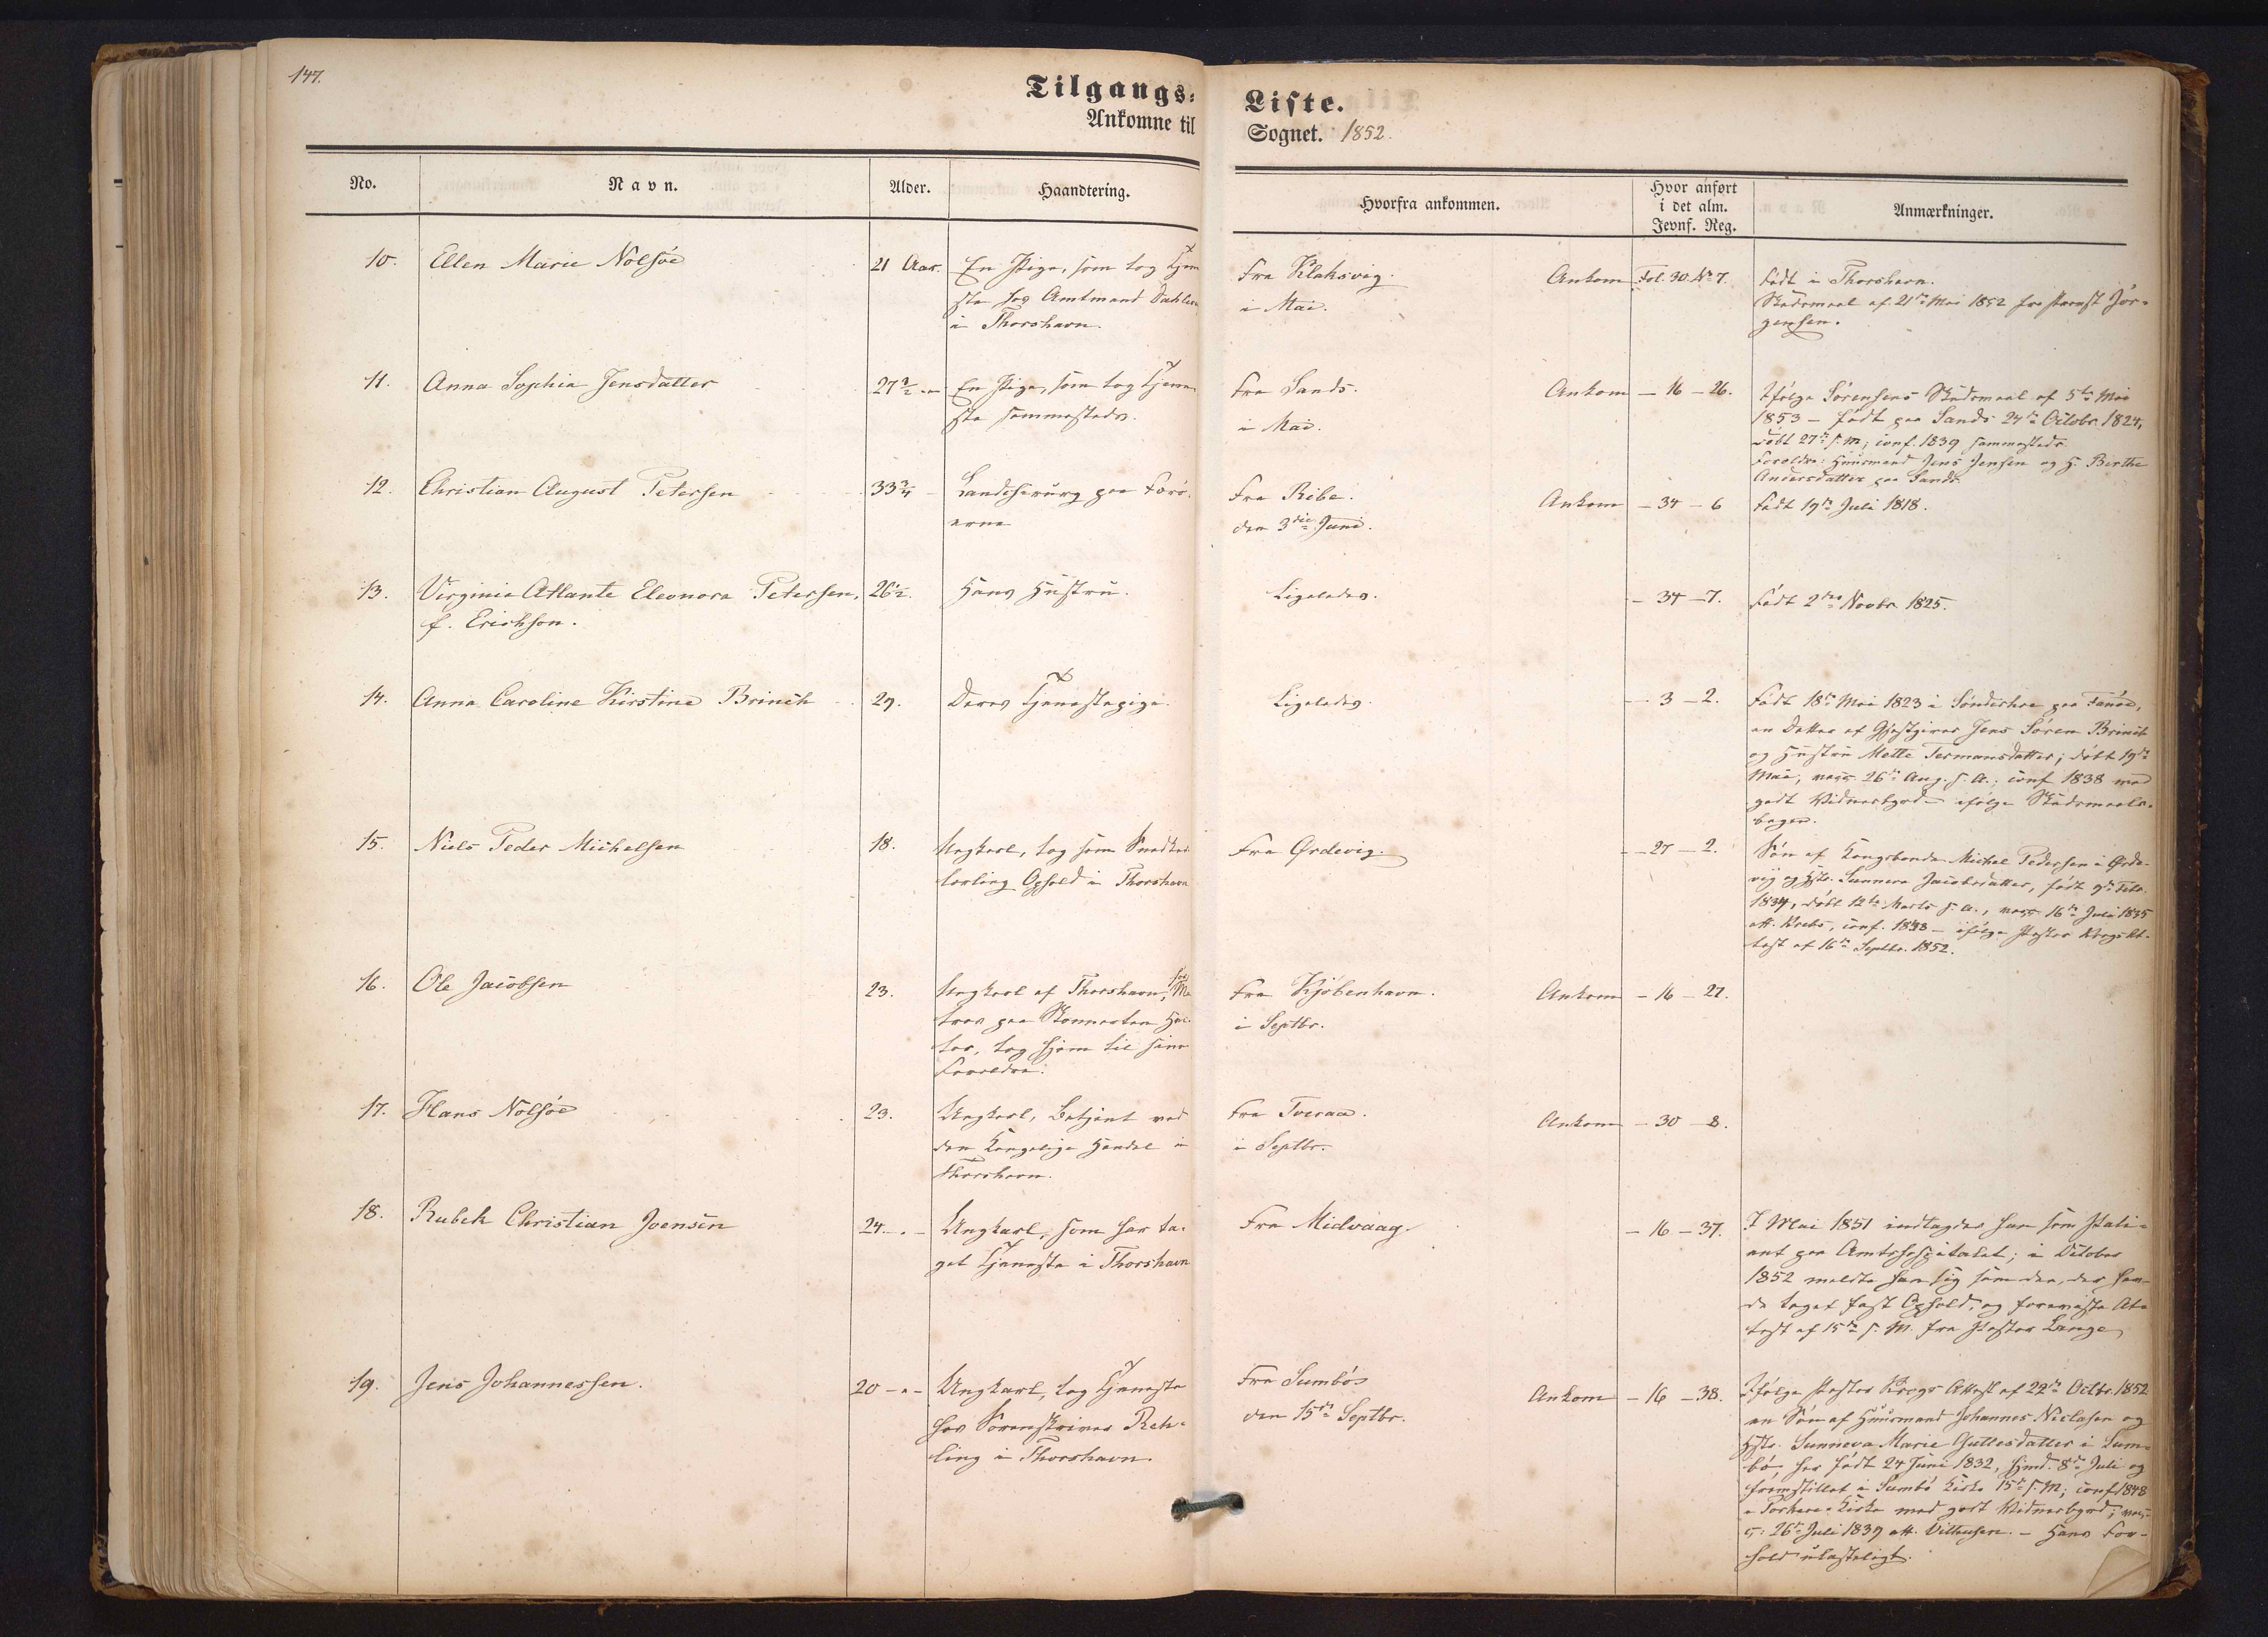 147.
Tilgangs-Liste.
Ankomne til Sognet. 1852.
No. Navn. Alder. Haandtering. Hvorfra ankommen. Hvor anført i det alm. Jevnf. Reg. Anmærkninger.
10. Ellen Marie Nolsöe 21 Aar. En Pige, som tog Tjene-
ste hos Amtmand Dahlerup
i Thorshavn.
Fra Klaksvig. Ankom
i Mai.
Fol. 30. No 7.
Født i Thorshavn.
Skudsmaal af 21de Mai 1852 fra Provst Jör-
gensen.
11. Anna Sophia Jensdatter 27½ - En Pige, som tog Tjene-
ste sammesteds.
Fra Sands. Ankom
i Mai.
- 16 - 26.
Ifølge Sørensens Skudsmaal af 5te Mai
1853 - født paa Sands 24de Octobr. 1824,
döbt 27de s. M; conf. 1839 sammesteds.
Forældre: Huusmand Jens Jensen og H. Birthe
Andersdatter paa Sands.
12. Christian August Petersen 33¾ - Landchirurg paa Færø-
erne
Fra Ribe. Ankom
den 3die Juni.
- 34 - 6
Født 19de Juli 1818.
13. Virginia Atlante Eleonora Petersen, 26½. Hans Hustru.
f. Erichson.
Ligeledes.
- 34 - 7.
Født 2den Novbr. 1825.
14. Anna Caroline Kirstine Brinch 29. Deres Tjenestepige.
Ligeledes.
- 3 - 2.
Født 18de Mai 1823 i Sønderhoe paa Fanøe,
en Datter af Gjæstgiver Jens Sören Brinch
og Hustru Mette Termansdatter; døbt 19de
Mai, vacc. 26de Aug. s. A.; conf. 1838 med
godt Vidnesbyrd - ifølge Skudsmaals-
bogen.
15. Niels Peder Michelsen 18. Ungkarl, tog som Snedker-
lærling Ophold i Thorshavn
Fra Ørdevig.
- 27 - 2.
Søn af Kongsbonde Michel Pedersen i Ørde-
vig og Hstr. Sunneva Jacobsdatter, født 9de Febr.
1834, döbt 12te Marts s. A., vacc. 16de Juli 1835
aff. Krebs, conf. 1848 - ifølge Pastor Krogs At-
test af 16de Septbr. 1852.
16. Ole Jacobsen 23. Ungkarl af Thorshavn, før Ma-
tros paa Skonnerten Hec-
tor, tog hjem til sine
Forældre.
Fra Kjöbenhavn. Ankom
i Septbr.
- 16 - 27.
17. Hans Nolsöe 23. Ungkarl, Betjent ved
den Kongelige Handel i
Thorshavn.
Fra Tveraa. Ankom
i Septbr.
- 30 - 8.
18. Rubek Christian Joensen 24 - Ungkarl, som har ta-
get Tjeneste i Thorshavn
Fra Midvaag.
- 16 - 37.
I Mai 1851 indlagdes han som Pati-
ent paa Amtshospitalet; i October
1852 meldte han sig som den, der hav-
de taget fast Ophold, og foreviste At-
test af 15de s. M. fra Pastor Lange
19. Jens Johannessen. 20 - Ungkarl, tog Tjeneste
hos Sorenskriver Reh-
ling i Thorshavn.
Fra Sumbö Ankom
den 15de Septbr.
- 16 - 38.
Ifølge Pastor Krogs Attest af 22de Octbr. 1852
en Søn af Huusmand Johannes Niclasen og
Hstr. Sunneva Marie Guttesdatter i Sum-
bö, her født 24 Juni 1832, hjmd. 8de Juli og
fremstillet i Sumbö Kirke 15de s. M; conf. 1848
i Porkere Kirke med godt Vidnesbyrd; vac-
c: 26de Juli 1839 aff. - Hans For-
hold ulasteligt.